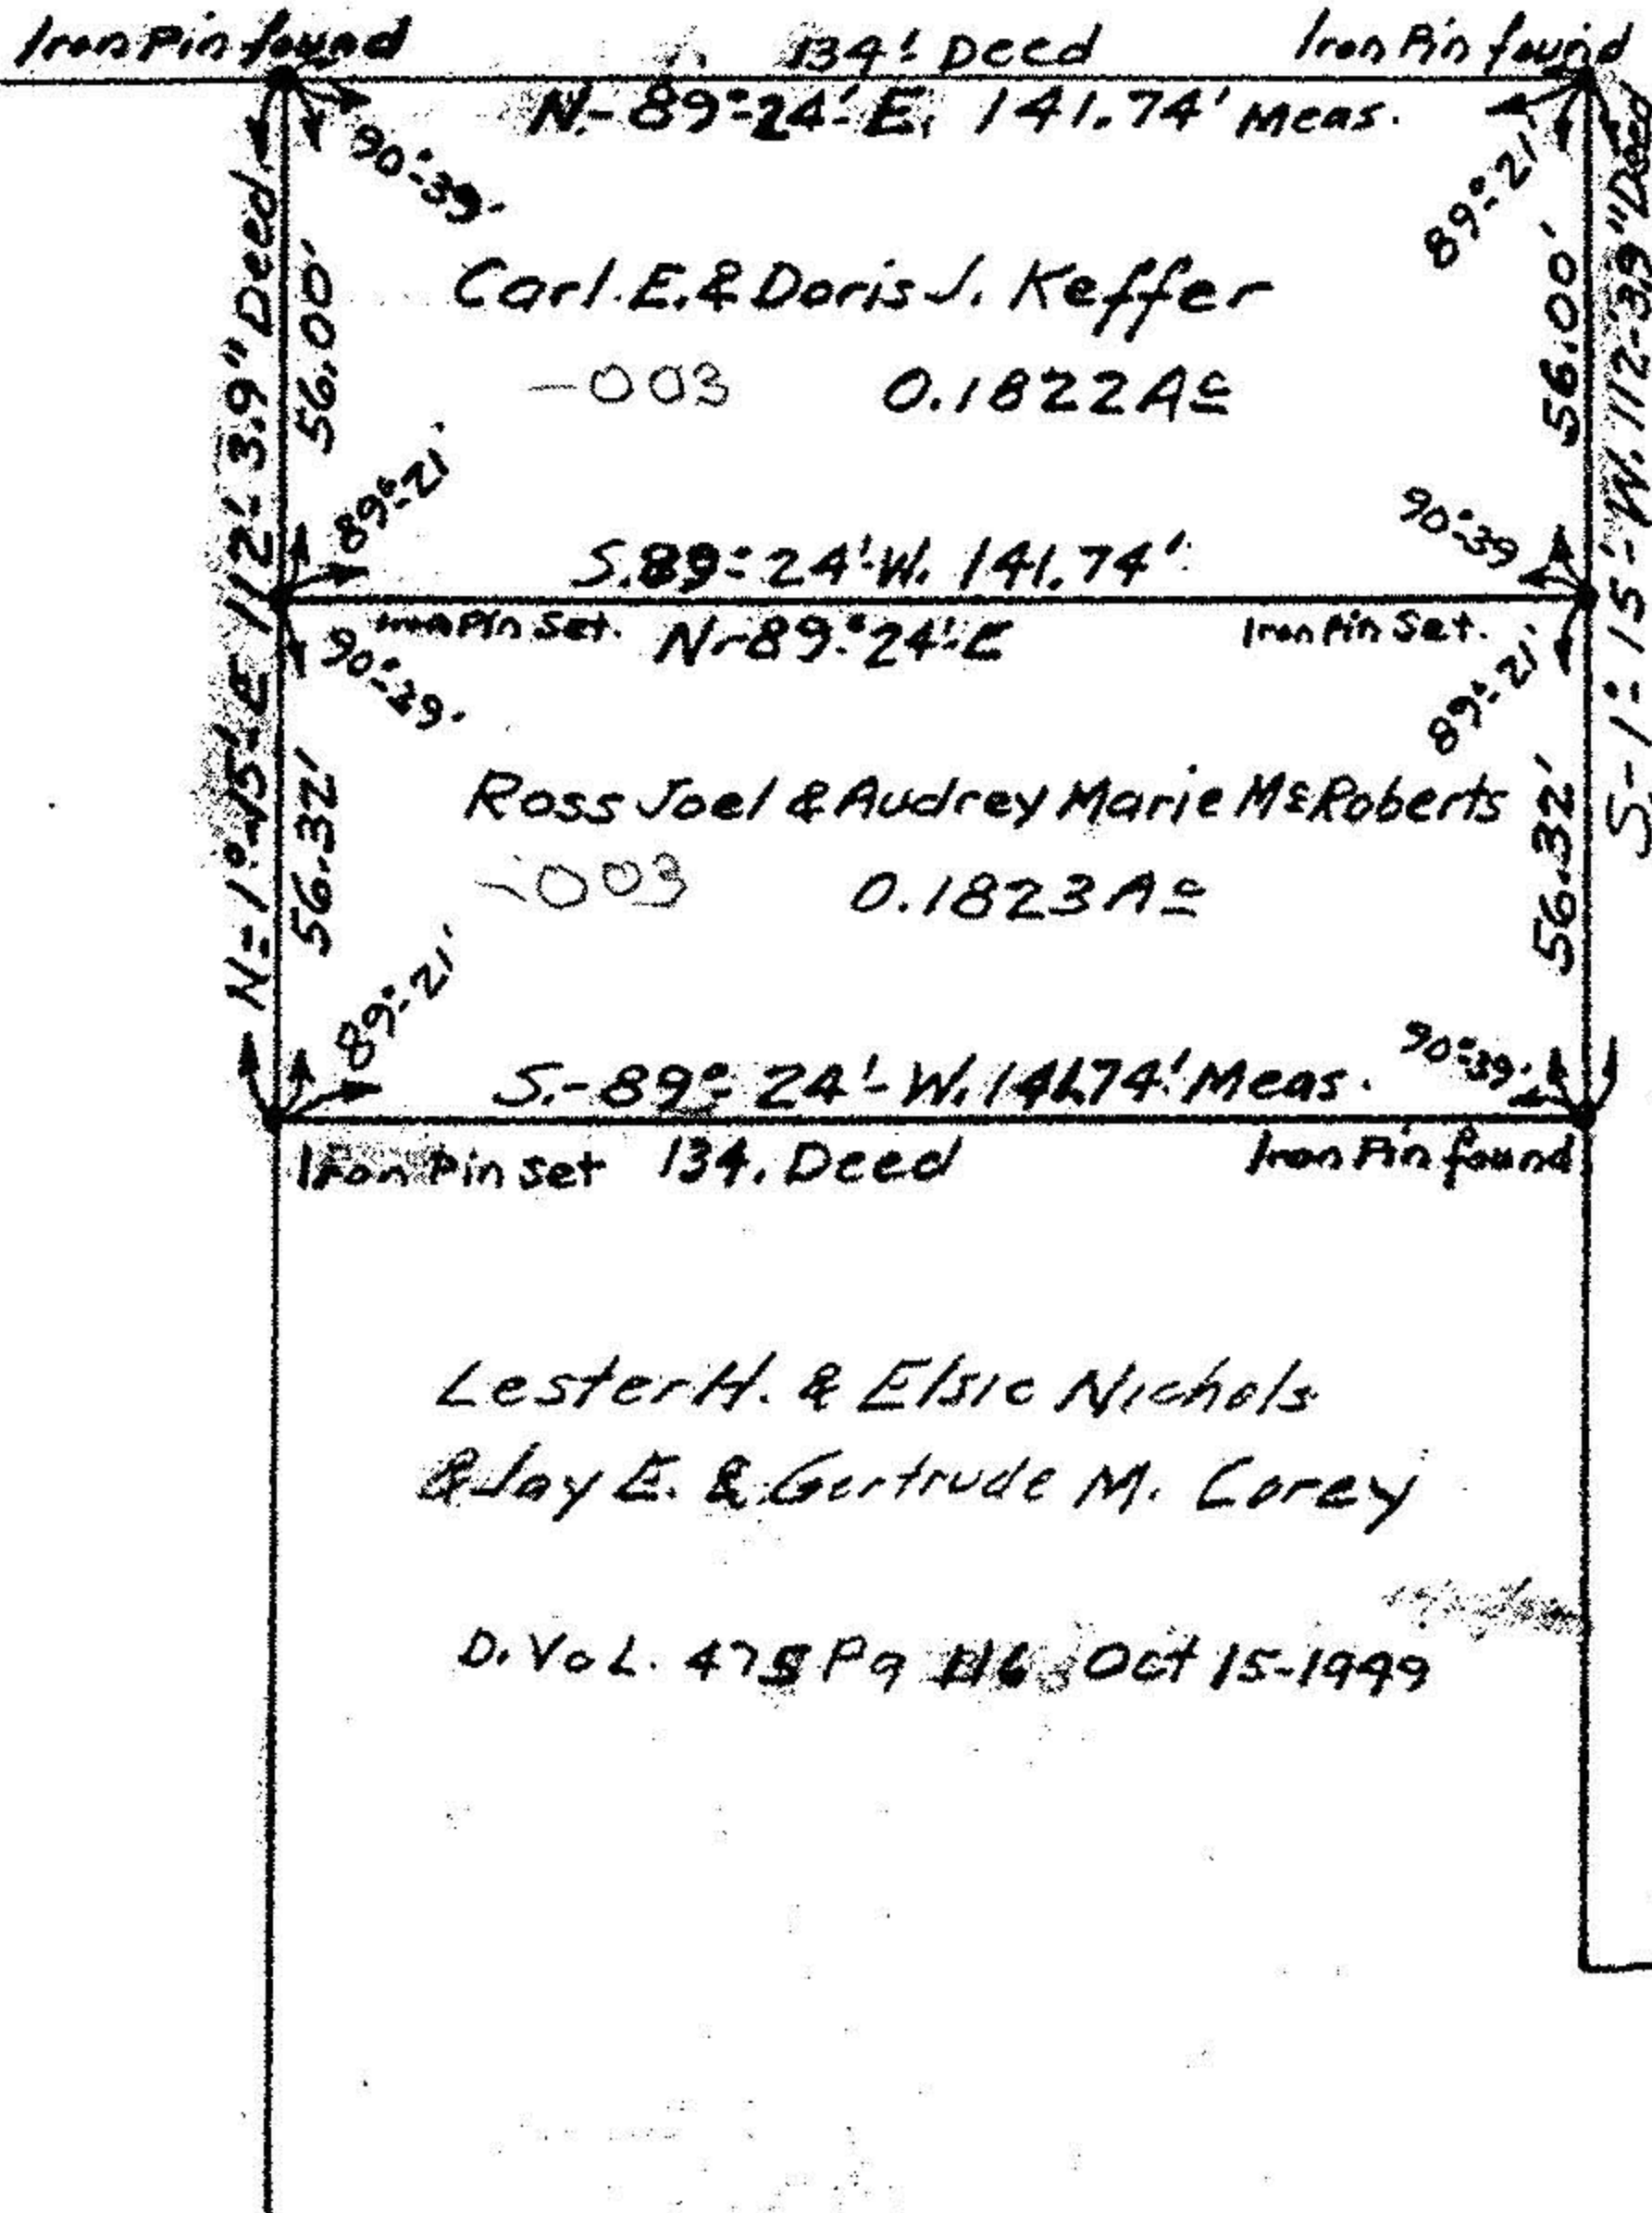 Iron Pin found 134' Deed Iron Pin found
N.-89°-24'-E. 141.74' Meas.
90°-39'
89°-21'
N-1°-15'-E 112'-3.9" Deed
56.00'
56.00'
S-1°-15'-W. 112'-3.9" Deed
Carl. E. & Doris J. Keffer
-003 0.1822 Ac
89°-21'
90°-39
S.89°-24'-W. 141.74'
Iron Pin Set. N-89°-24'-E Iron Pin Set.
90°-39'
89°-21'
56.32'
56.32'
Ross Joel & Audrey Marie McRoberts
-003 0.1823 Ac
89°-21'
90°-39'
S.-89°-24'-W. 141.74' Meas.
Iron Pin set 134. Deed Iron Pin found
Lester H. & Elsie Nichols
& Jay E. & Gertrude M. Corey
D. Vol. Pg Oct 15-1949